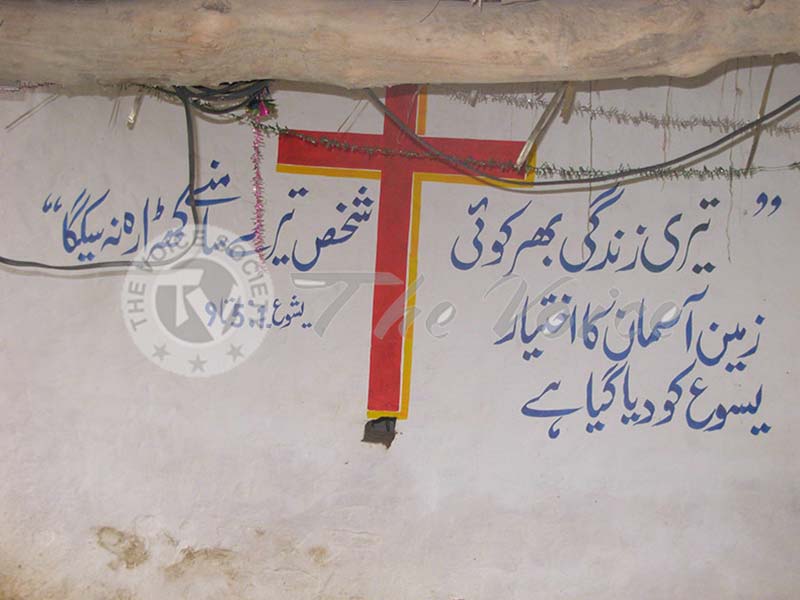 ”تیری زندگی بھر کوئی شخص تیرے سامنے کھڑا رہ نہ سکیگا“
یشوع 1:5 تا 9
زمین آسمان کا اختیار
یسوع کو دیا گیا ہے
The Voice
THE VOICE SOCIETY